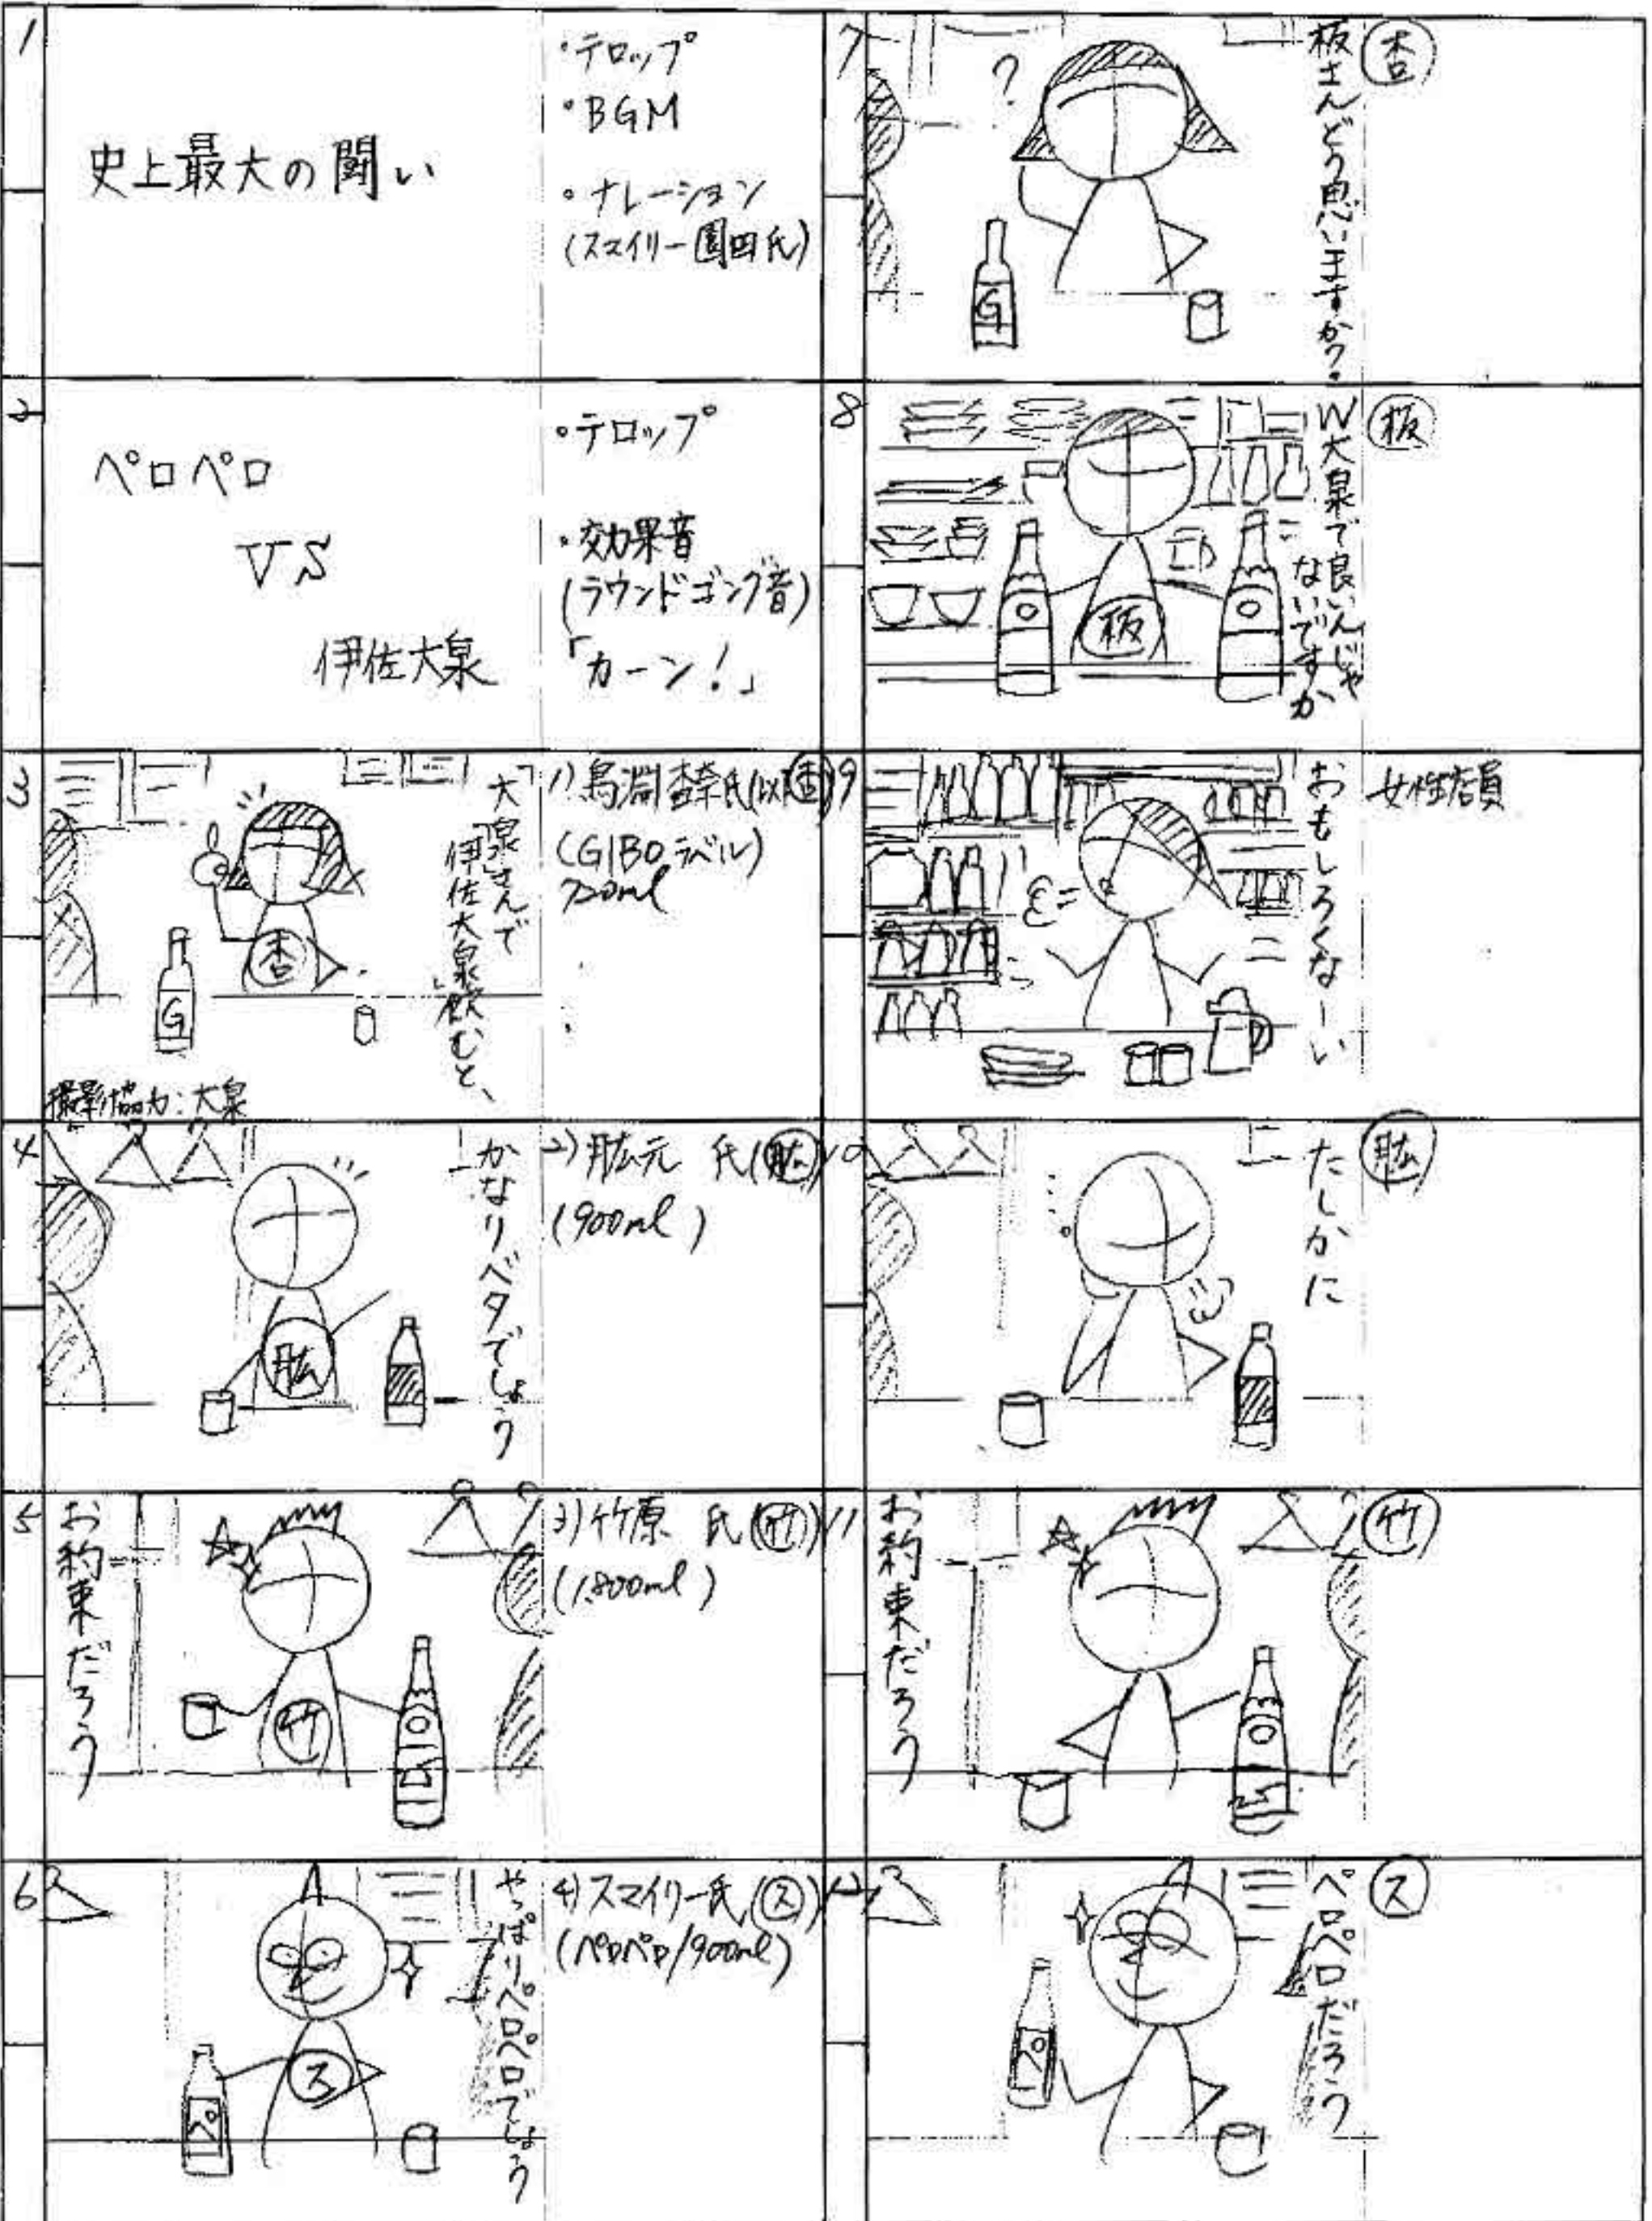 1
史上最大の闘い
・テロップ
・BGM
・ナレーション
(スマイリー園田氏)
2
ペロペロ
VS
伊佐大泉
・テロップ
・効果音
(ラウンドゴング音)
「カーン!」
3
「大泉」さんで
「伊佐大泉」飲むと、
杏
G
撮影協力:大泉
1) 鳥淵杏奈氏(以下杏)
(GIBOラベル)
720ml
4
かなりベタでしょう
肱
2) 肱元 氏(肱)
(900ml)
5
お約束だろう
竹
3) 竹原 氏(竹)
(1,800ml)
6
やっぱりペロペロでしょう
ス
ペ
4) スマイリー氏(ス)
(ペロペロ/900ml)
7
?
G
板さんどう思いますか?
杏
8
W大泉で良いんじゃ
ないですか
板
板
9
おもしろくなーい
女性店員
10
たしかに
肱
11
お約束だろう
竹
12
ペ
ペロペロだろう
ス